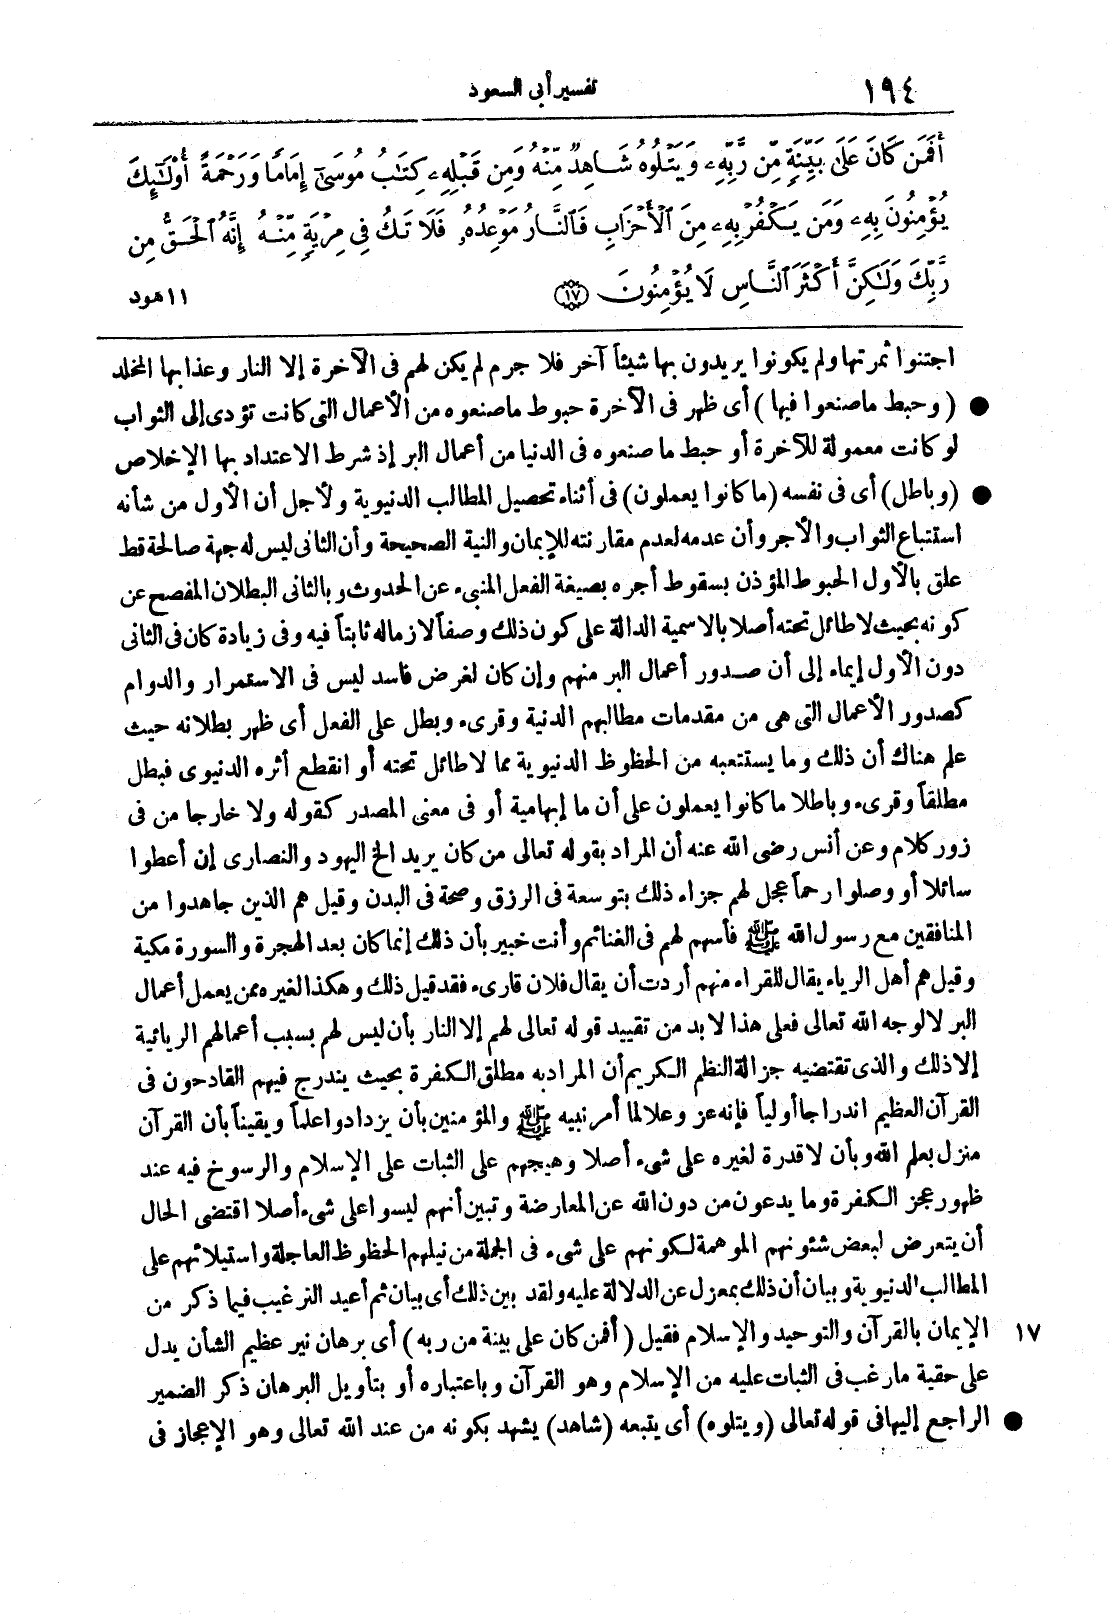 ١٩٤ تفسير أبى السعود
أَفَمَن كَانَ عَلَىٰ بَيِّنَةٍ مِّن رَّبِّهِۦ وَيَتْلُوهُ شَاهِدٌ مِّنْهُ وَمِن قَبْلِهِۦ كِتَٰبُ مُوسَىٰٓ إِمَامًا وَرَحْمَةً أُوْلَٰٓئِكَ
يُؤْمِنُونَ بِهِۦ وَمَن يَكْفُرْ بِهِۦ مِنَ ٱلْأَحْزَابِ فَٱلنَّارُ مَوْعِدُهُۥ فَلَا تَكُ فِى مِرْيَةٍ مِّنْهُ إِنَّهُ ٱلْحَقُّ مِن
رَّبِّكَ وَلَٰكِنَّ أَكْثَرَ ٱلنَّاسِ لَا يُؤْمِنُونَ ١٧ ١١ هود
اجتنوا ثمرتها ولم يكونوا يريدون بها شيئاً آخر فلا جرم لم يكن لهم فى الآخرة إلا النار وعذابها المخلد
● (وحبط ماصنعوا فيها) أى ظهر فى الآخرة حبوط ماصنعوه من الأعمال التى كانت تؤدى إلى الثواب
لو كانت معمولة للآخرة أو حبط ما صنعوه فى الدنيا من أعمال البر إذ شرط الاعتداد بها الإخلاص
● (وباطل) أى فى نفسه (ما كانوا يعملون) فى أثناء تحصيل المطالب الدنيوية ولأجل أن الأول من شأنه
استتباع الثواب والأجر وأن عدمه لعدم مقارنته للإيمان والنية الصحيحة وأن الثانى ليس له جهة صالحة قط
علق بالأول الحبوط المؤذن بسقوط أجره بصيغة الفعل المنبىء عن الحدوث وبالثانى البطلان المفصح عن
كونه بحيث لا طائل تحته أصلا بالاسمية الدالة على كون ذلك وصفاً لازماله ثابتاً فيه وفى زيادة كان فى الثانى
دون الأول إيماء إلى أن صدور أعمال البر منهم وإن كان لغرض فاسد ليس فى الاستمرار والدوام
كصدور الأعمال التى هى من مقدمات مطالبهم الدنية وقرىء وبطل على الفعل أى ظهر بطلانه حيث
علم هناك أن ذلك وما يستتعبه من الحظوظ الدنيوية مما لا طائل تحته أو انقطع أثره الدنيوى فبطل
مطلقاً وقرىء وباطلا ما كانوا يعملون على أن ما إبهامية أو فى معنى المصدر كقوله ولا خارجا من فى
زور كلام وعن أنس رضى الله عنه أن المراد بقوله تعالى من كان يريد الخ اليهود والنصارى إن أعطوا
سائلا أو وصلوا رحماً عجل لهم جزاء ذلك بتوسعة فى الرزق وصحة فى البدن وقيل هم الذين جاهدوا من
المنافقين مع رسول الله ﷺ فأسهم لهم فى الغنائم وأنت خبير بأن ذلك إنما كان بعد الهجرة والسورة مكية
وقيل هم أهل الرياء يقال للقراء منهم أردت أن يقال فلان قارىء فقد قيل ذلك وهكذا لغيره ممن يعمل أعمال
البر لا لوجه الله تعالى فعلى هذا لا بد من تقييد قوله تعالى لهم إلا النار بأن ليس لهم بسبب أعمالهم الريائية
إلا ذلك والذى تقتضيه جزالة النظم الكريم أن المراد به مطلق الكفرة بحيث يندرج فيهم القادحون فى
القرآن العظيم اندراجا أولياً فإنه عز وعلا لما أمر نبيه ﷺ والمؤمنين بأن يزدادوا علماً ويقيناً بأن القرآن
منزل بعلم الله وبأن لا قدرة لغيره على شىء أصلا وهيجهم على الثبات على الإسلام والرسوخ فيه عند
ظهور عجز الكفرة وما يدعون من دون الله عن المعارضة وتبين أنهم ليسوا على شىء أصلا اقتضى الحال
أن يتعرض لبعض شئونهم الموهمة لكونهم على شىء فى الجملة من نيلهم الحظوظ العاجلة واستيلائهم على
المطالب الدنيوية وبيان أن ذلك بمعزل عن الدلالة عليه ولقد بين ذلك أى بيان ثم أعيد الترغيب فيما ذكر من
١٧ الإيمان بالقرآن والتوحيد والإسلام فقيل (أفمن كان على بينة من ربه) أى برهان نير عظيم الشأن يدل
على حقية ما رغب فى الثبات عليه من الإسلام وهو القرآن وباعتباره أو بتأويل البرهان ذكر الضمير
● الراجع إليها فى قوله تعالى (ويتلوه) أى يتبعه (شاهد) يشهد بكونه من عند الله تعالى وهو الإعجاز فى